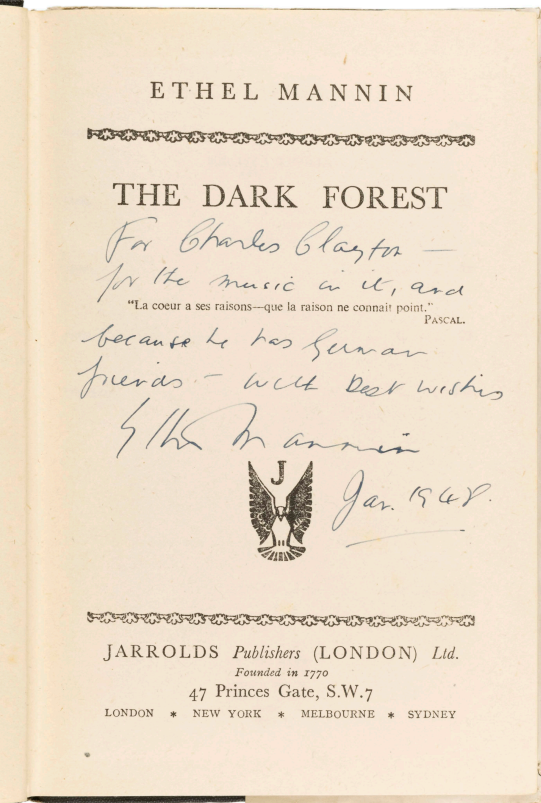 ETHEL MANNIN
THE DARK FOREST
For Charles Clayton —
for the music in it, and
"La coeur a ses raisons—que la raison ne connait point."
PASCAL.
because he has German
friends — with best wishes
Ethel Mannin
J
Jan. 1948.
JARROLDS Publishers (LONDON) Ltd.
Founded in 1770
47 Princes Gate, S.W.7
LONDON * NEW YORK * MELBOURNE * SYDNEY